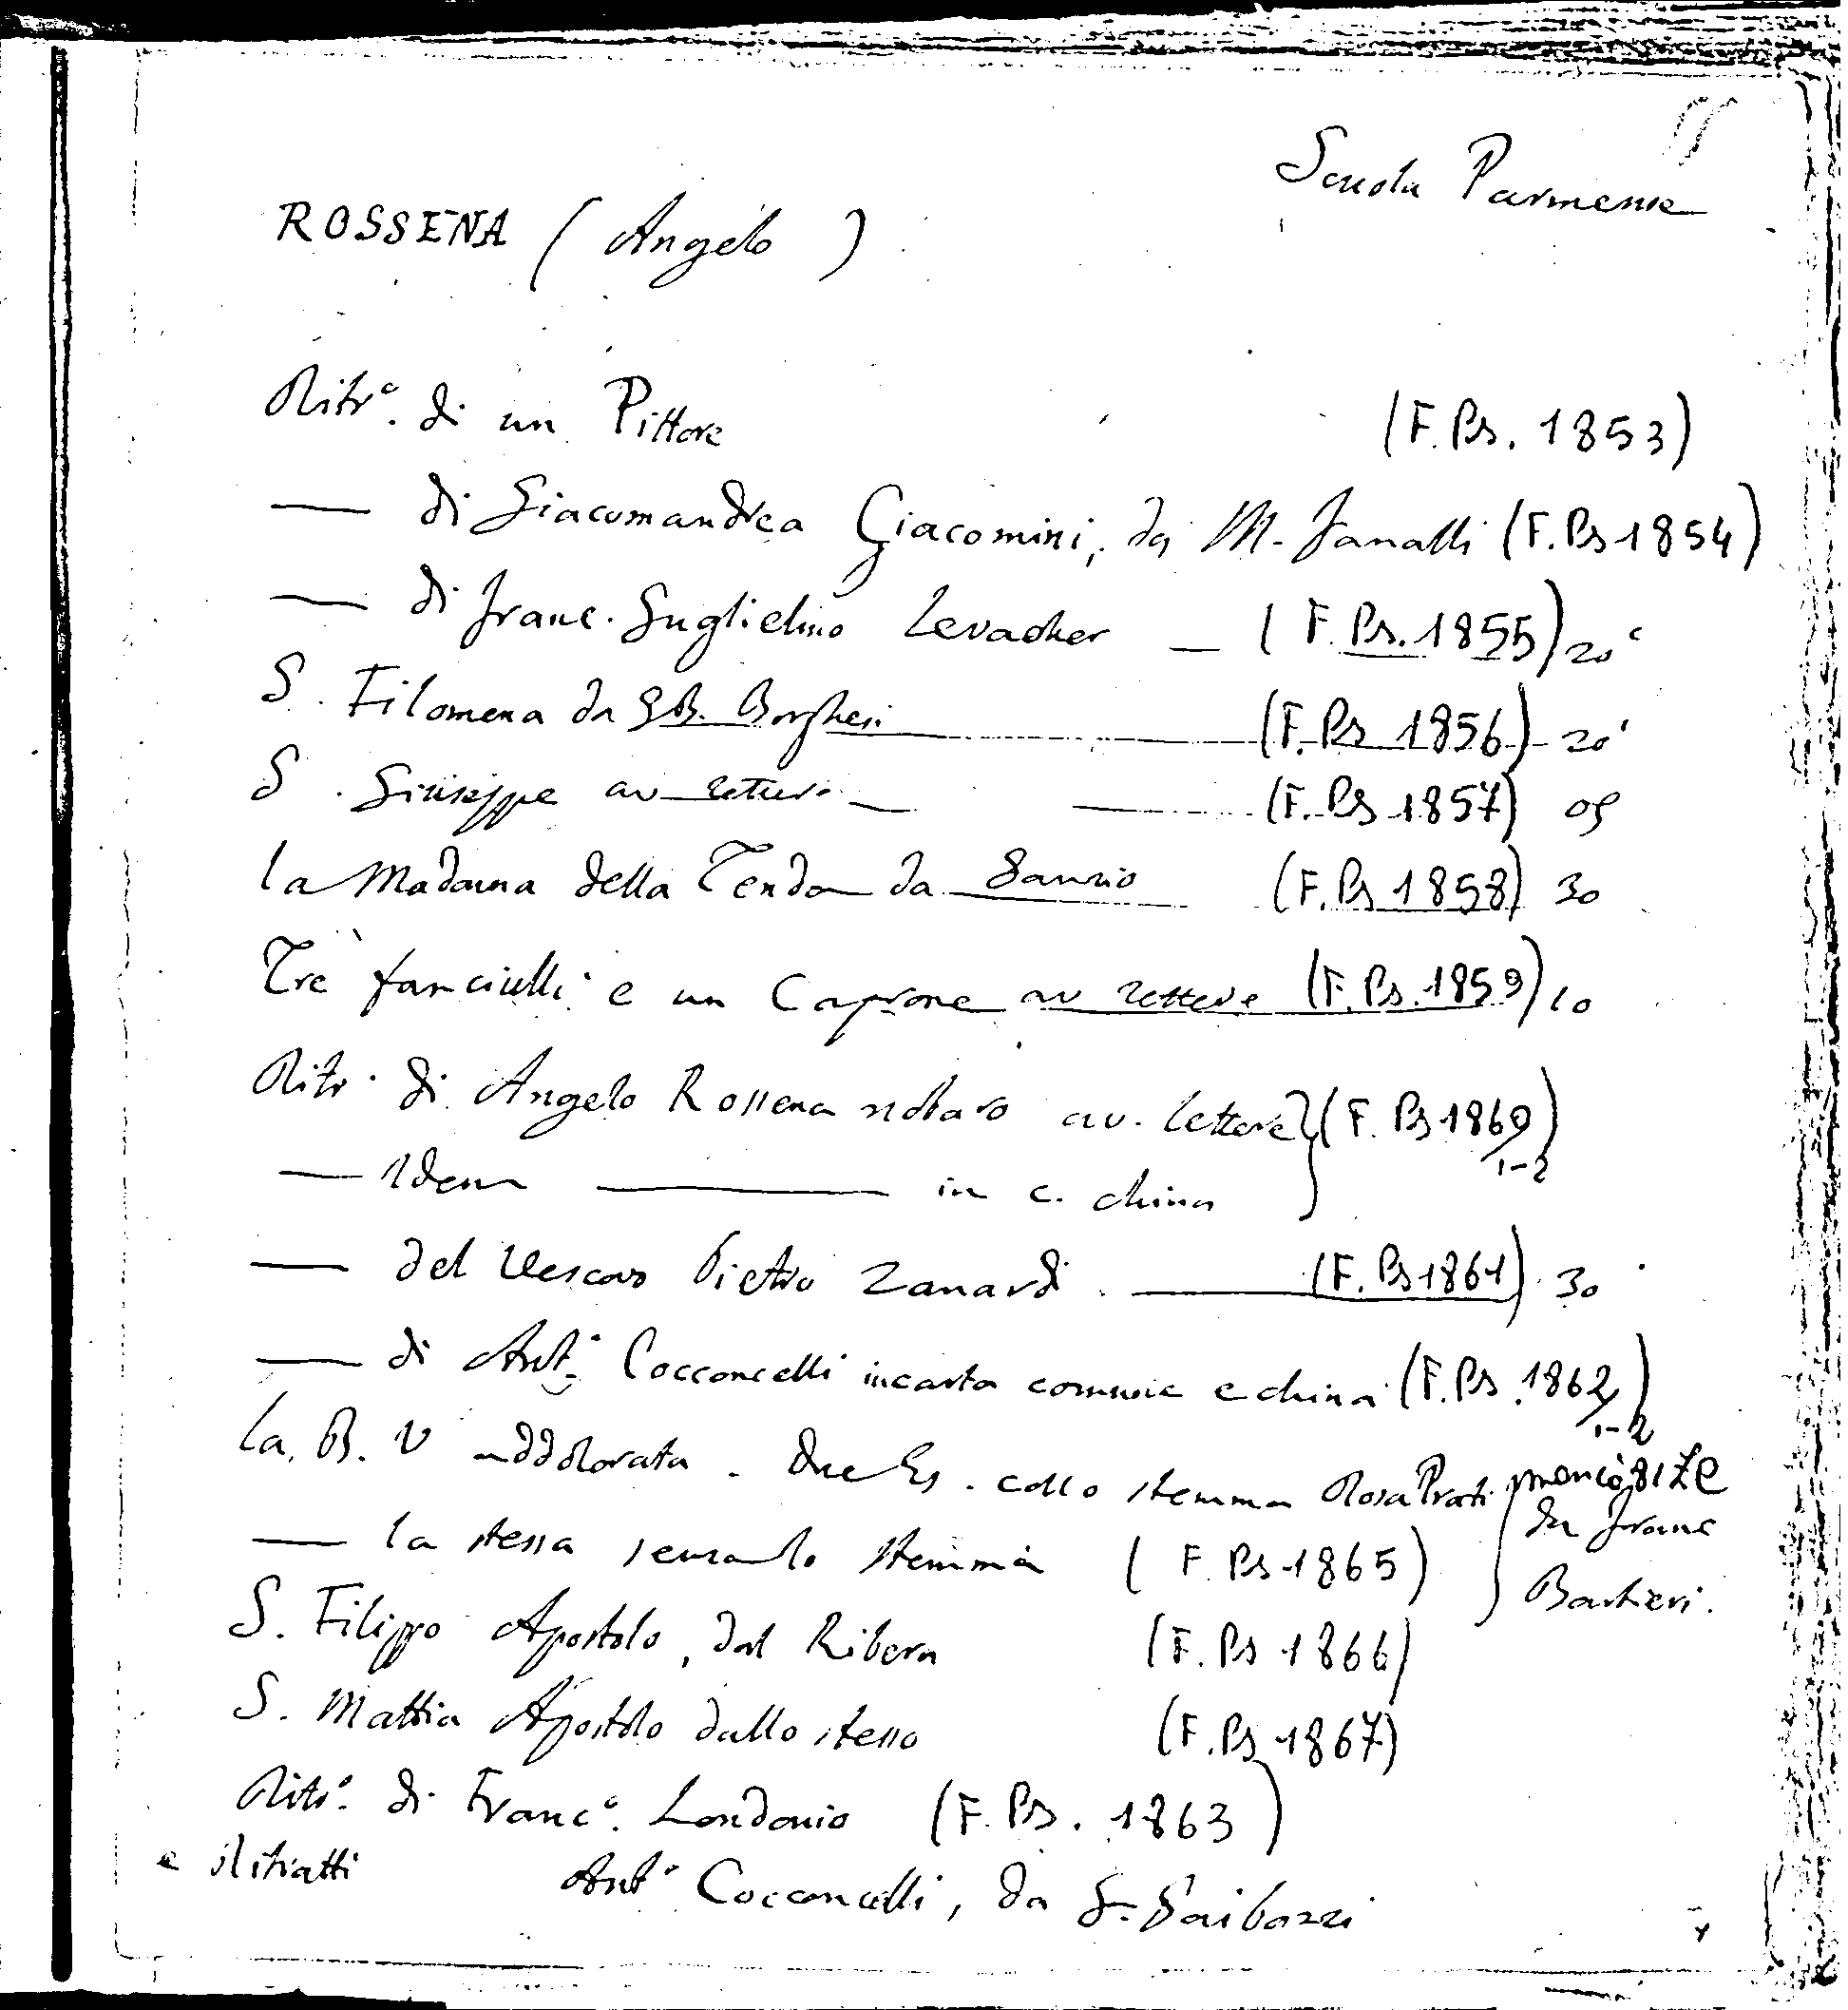 Scuola Parmense
ROSSENA (Angelo)
Ritr.º di un Pittore (F. Ps. 1853)
— di Giacomandrea Giacomini, da M. (F. Ps 1854)
— di Franc. Guglielmo Levacher — (F. Ps. 1855) 20 c
S. Filomena da GB. Borghesi (F. Ps 1856) 20
S. Giuseppe av lettere — (F. Ps 1857) 05
La Madonna della Tenda da Sanzio (F. Ps 1858) 30
Tre fanciulli e un Caprone av lettere (F. Ps. 1859) 10
Ritr. di Angelo Rossena notaro av. lettere } (F. Ps 1860/1-2)
— Idem — in c. china
— del Vescovo Pietro Zanardi — (F. Ps 1861) 30
— di Ant.º Cocconcelli in carta comune e china (F. Ps. 1862/1-2)
La. B. V addolorata. Due Es. collo stemma Rosa Prati
— la stessa senza lo stemma (F. Ps 1865) } da Franc Barbieri.
S. Filippo Apostolo, dal Ribera (F. Ps 1866)
S. Mattia Apostolo dallo stesso (F. Ps 1867)
Ritr.º di Franc.º Londonio (F. Ps. 1863)
e ritratti Ant.º Cocconcelli, da G. Gaibazzi